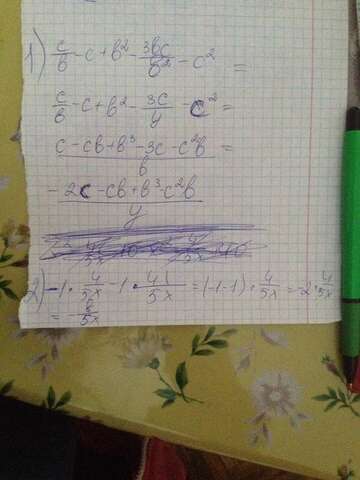 1) c/в - c + в² - 3вc/в² - c² =
c/в - c + в² - 3c/y - c² =
c - cв + в³ - 3c - c²в / в =
- 2c - cв + в³ - c²в / y
2) -1 · 4/5x - 1 · 4/5x = (-1-1) · 4/5x = -2 · 4/5x
= - 8/5x